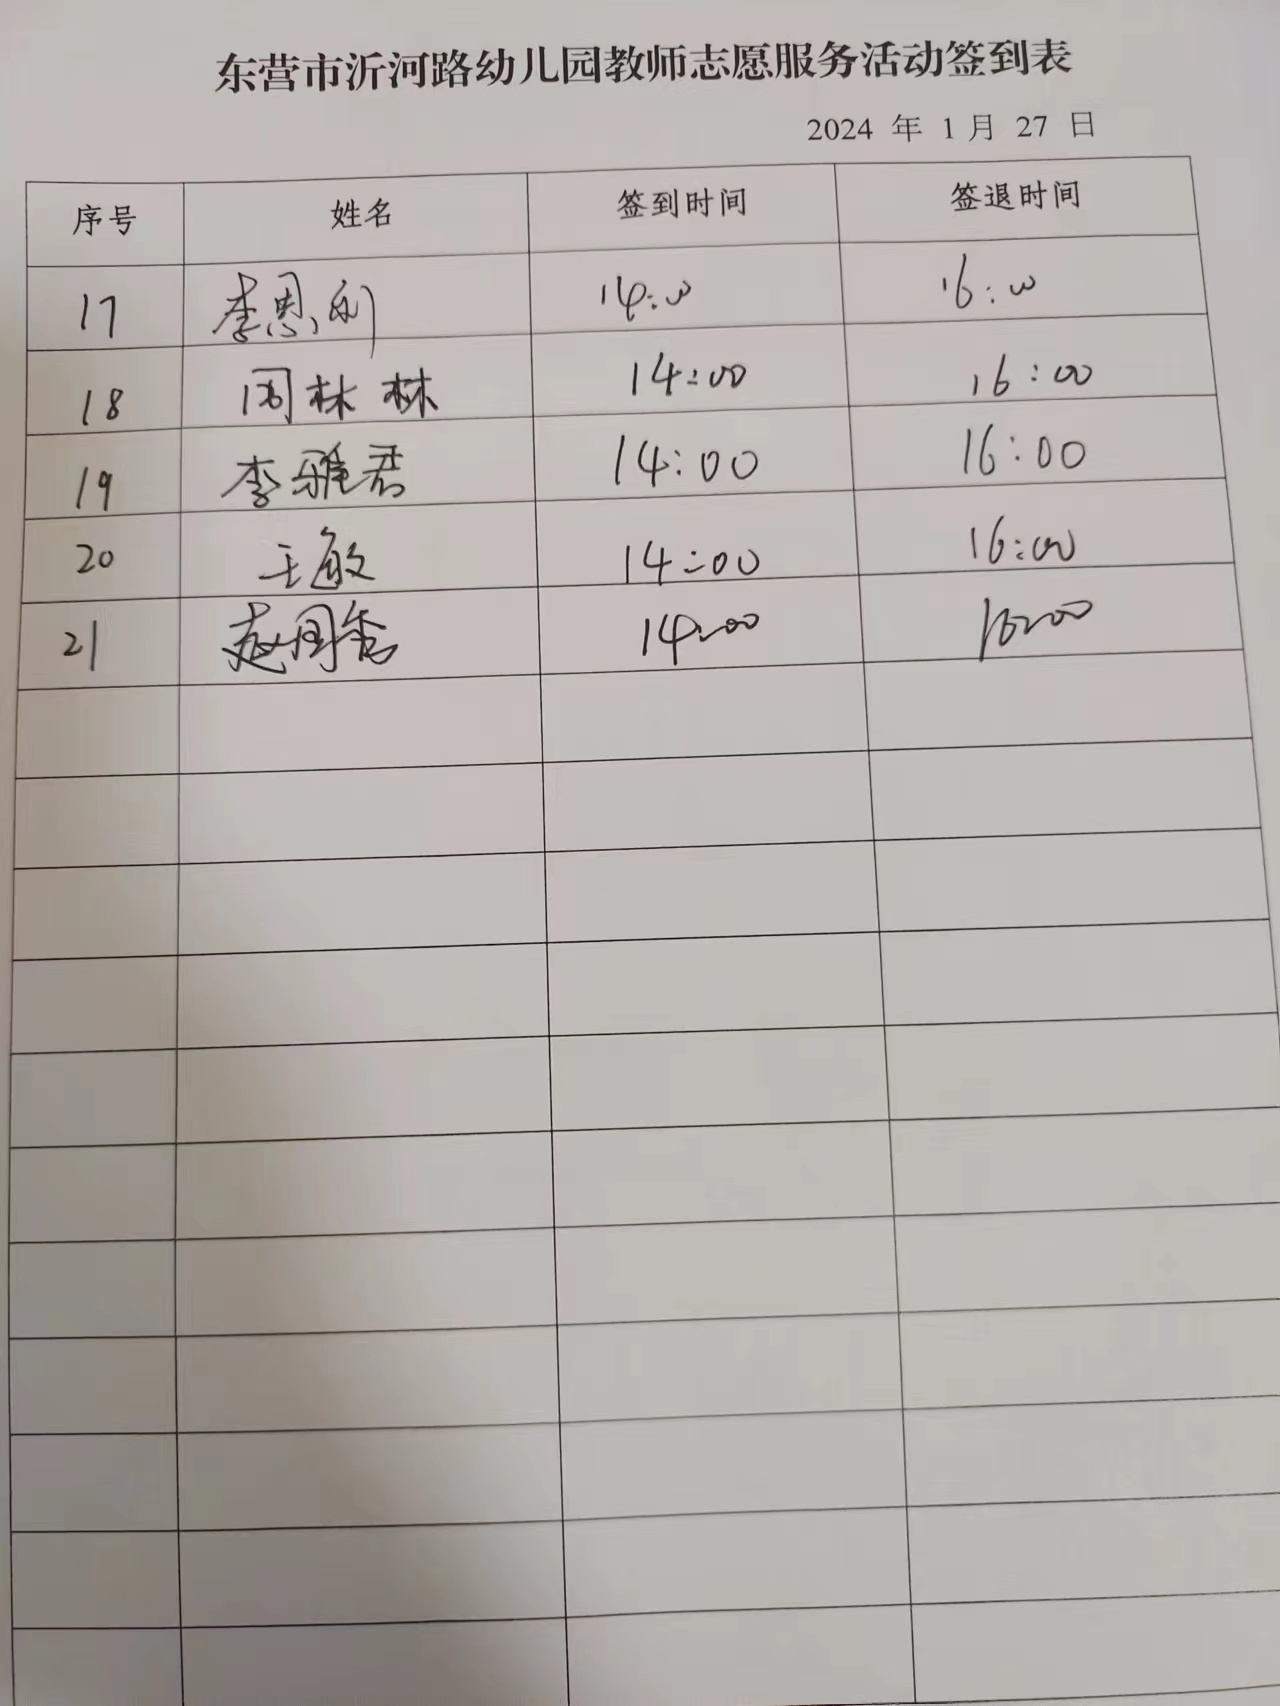 东营市沂河路幼儿园教师志愿服务活动签到表
2024 年 1 月 27 日
序号 姓名 签到时间 签退时间
17 李恩利 14:00 16:00
18 周林林 14:00 16:00
19 李雅君 14:00 16:00
20 王敏 14:00 16:00
21 赵国香 14:00 16:00